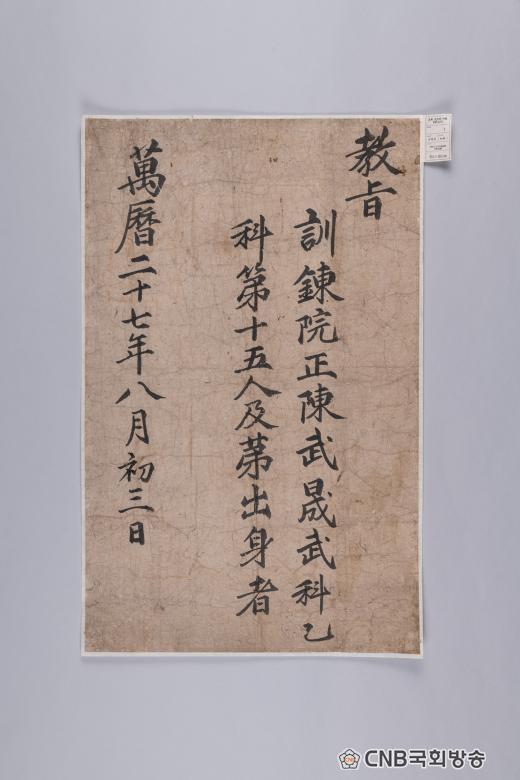 教旨
訓鍊院正陳武晟武科乙
科第十五人及苐出身者
萬曆二十七年八月初三日
CNB국회방송